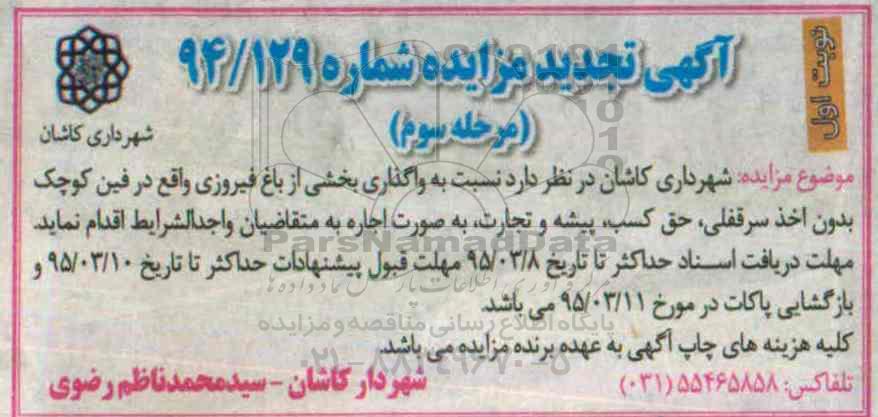 نوبت اول
آگهی تجدید مزایده شماره ۹۴/۱۲۹
(مرحله سوم)
شهرداری کاشان
موضوع مزایده: شهرداری کاشان در نظر دارد نسبت به واگذاری بخشی از باغ فیروزی واقع در فین کوچک
بدون اخذ سرقفلی، حق کسب، پیشه و تجارت، به صورت اجاره به متقاضیان واجدالشرایط اقدام نماید.
مهلت دریافت اسناد حداکثر تا تاریخ ۹۵/۰۳/۸ مهلت قبول پیشنهادات حداکثر تا تاریخ ۹۵/۰۳/۱۰ و
بازگشایی پاکات در مورخ ۹۵/۰۳/۱۱ می باشد.
کلیه هزینه های چاپ آگهی به عهده برنده مزایده می باشد.
تلفاکس: ۵۵۴۶۵۸۵۸ (۰۳۱)
شهردار کاشان - سیدمحمدناظم رضوی
ParsNamadData
پایگاه اطلاع رسانی مناقصه و مزایده